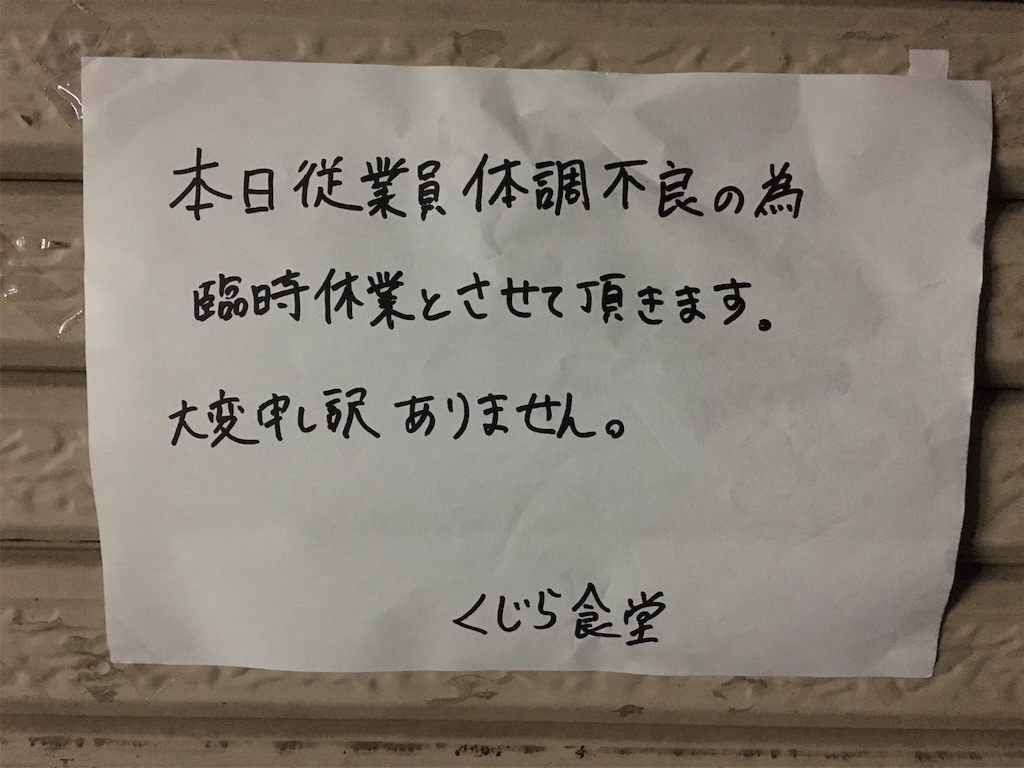 本日従業員体調不良の為
臨時休業とさせて頂きます。
大変申し訳ありません。
くじら食堂